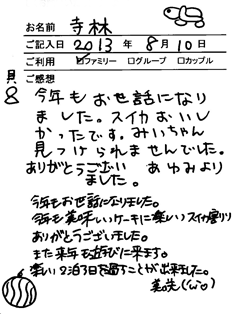 お名前 寺林
ご記入日 2013 年 8 月 10 日
ご利用 ☑ファミリー □グループ □カップル
ご感想
今年もお世話になり
ました。スイカおいし
かったです。みいちゃん
見つけられませんでした。
ありがとうござい あゆみより
ました。
今年もお世話になりました。
今年も美味しいケーキに楽しいスイカ割り
ありがとうございました。
また来年も遊びに来ます。
楽しい2泊3日を過すことが出来ました。